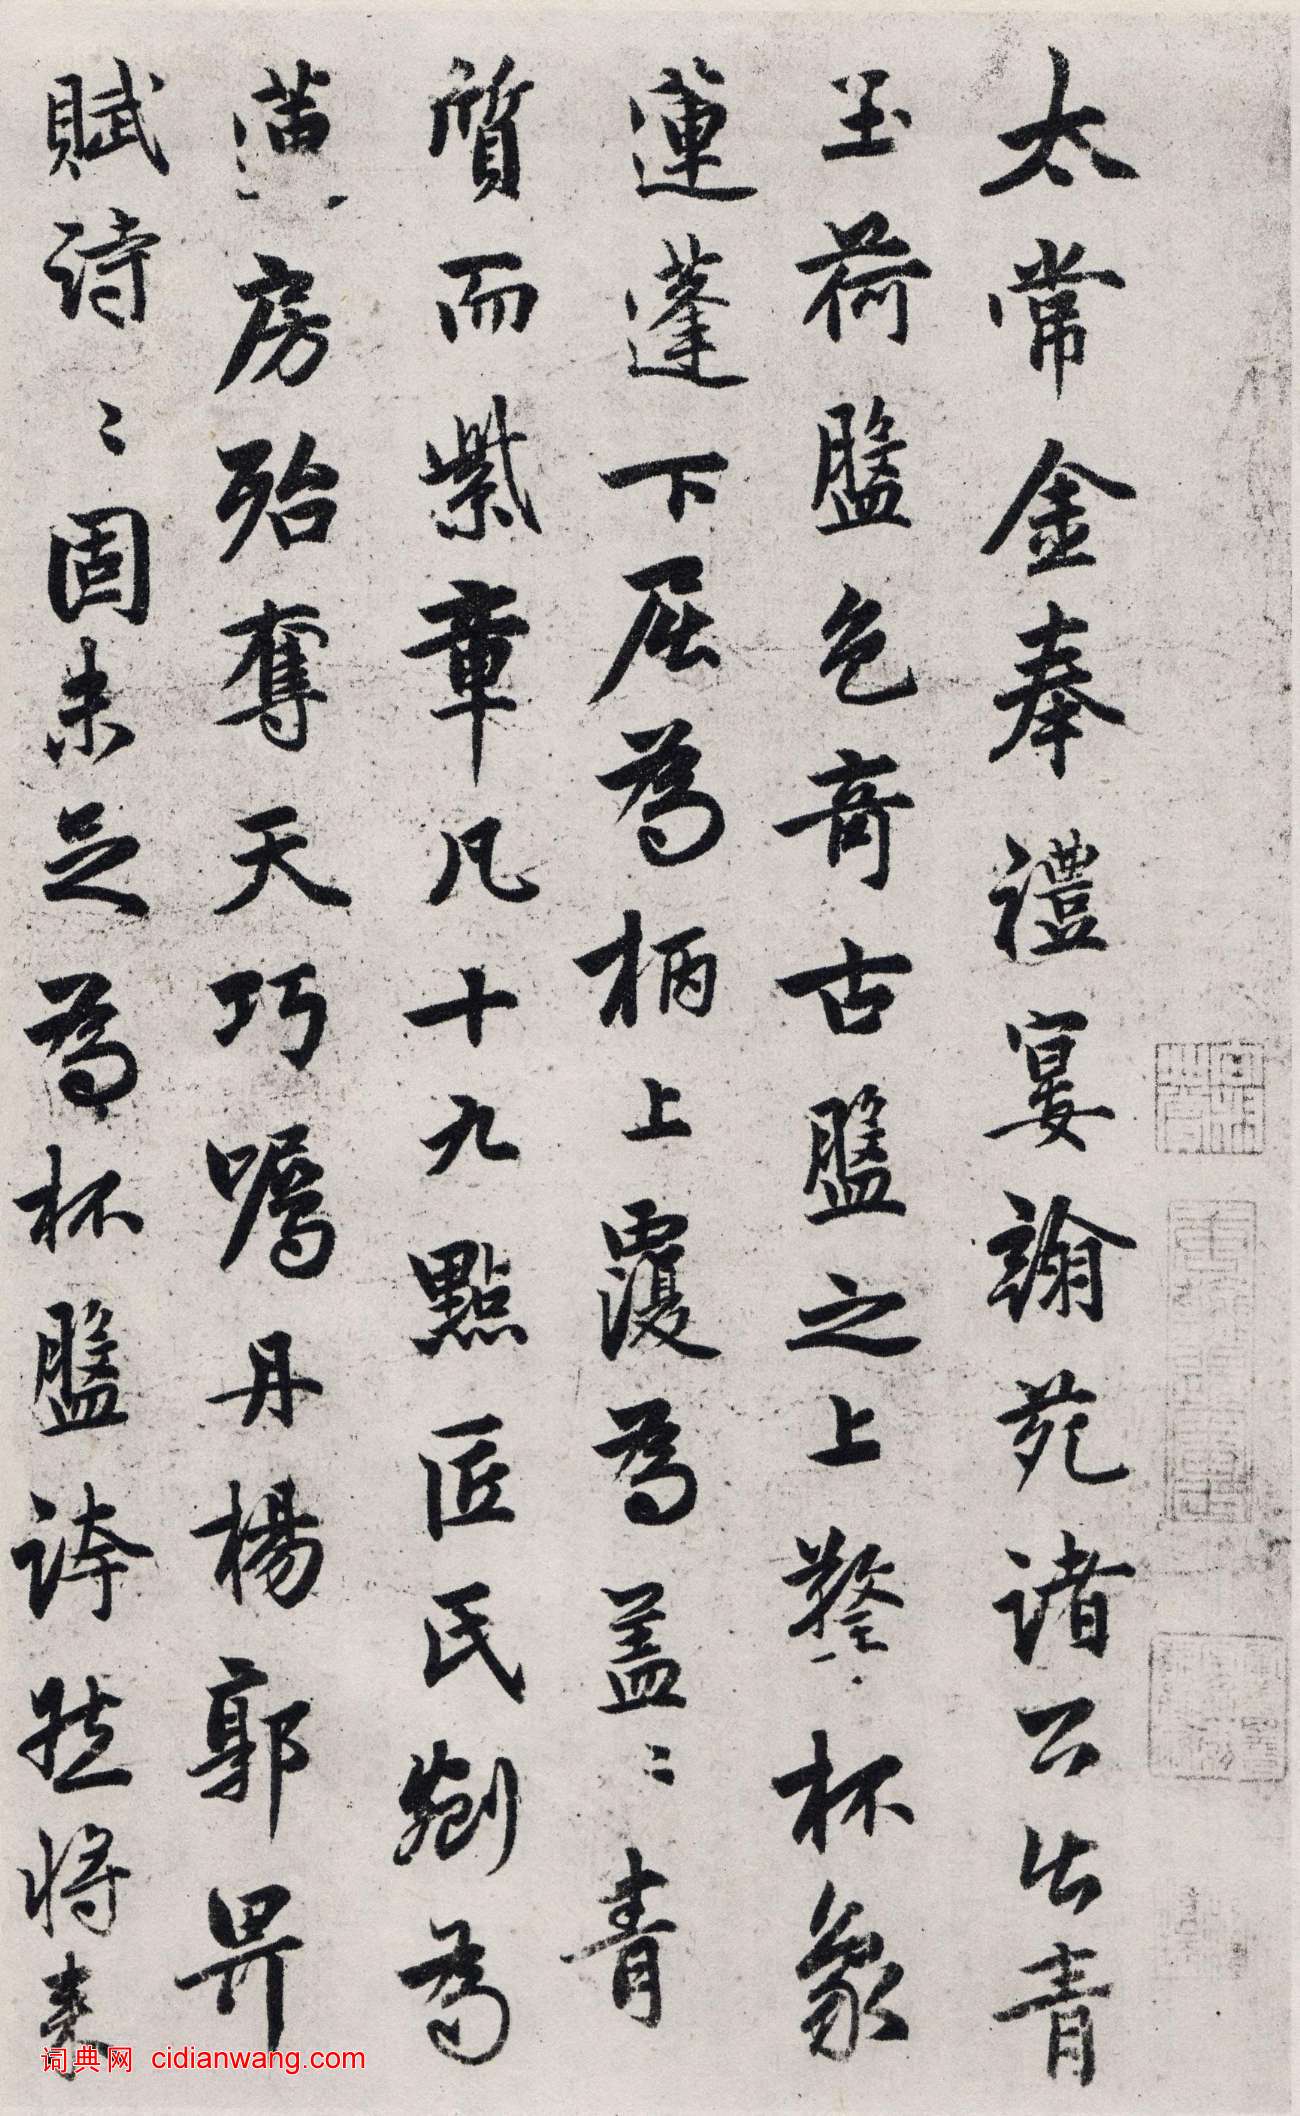 太常金奉禮宴翰苑諸公出青
玉荷盤色奇古盤之上擎杯象
蓮蓬下屈為柄上覆為蓋〻青
質而紫章凡十九點匠氏劙為
黄房殆奪天巧囑丹楊郭畀
賦詩〻固未足為杯盤誇然將来
词典网 cidianwang.com